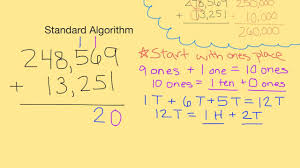 Standard Algorithm
1 1
248,569
+ 13,251
20
250,000
+ 13,251
10,000
260,000
☆ Start with ones place
9 ones + 1 one = 10 ones
10 ones = 1 ten + 0 ones
1T + 6T + 5T = 12T
12T = 1H + 2T